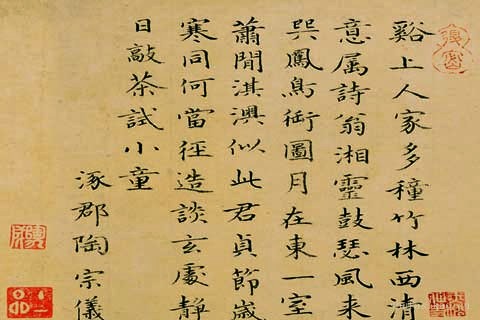 谿上人家多種竹林西清
意属詩翁湘靈鼓瑟風来
巺鳳鳥銜圖月在東一室
蕭閒淇澳似此君貞節歳
寒同何當徑造談玄處静
日敲茶試小童
涿郡陶宗儀